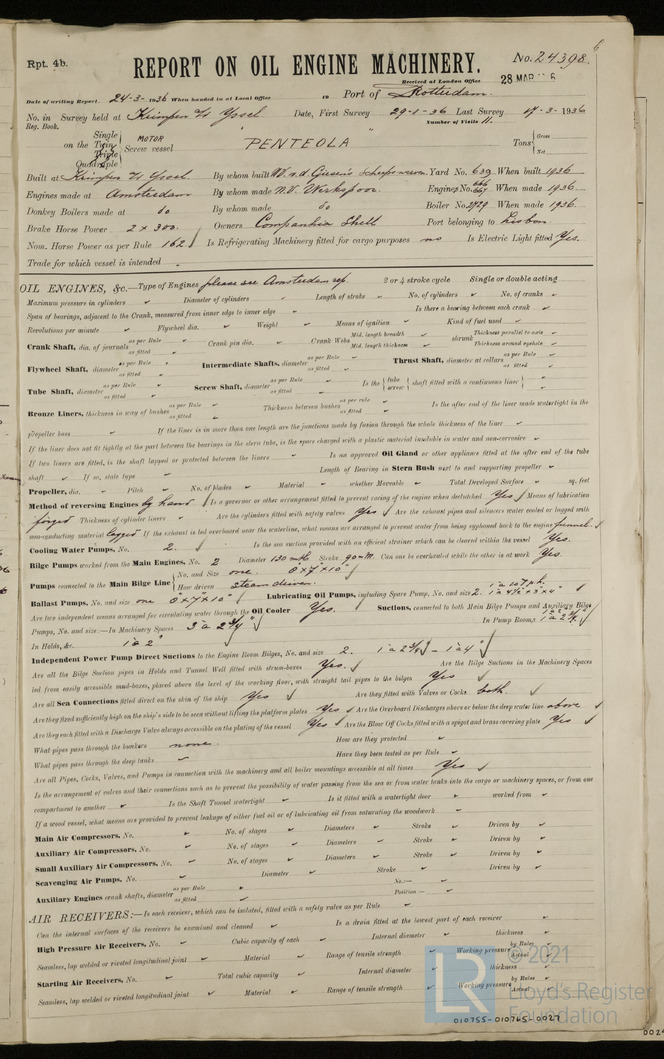 6
Rpt. 4b.
REPORT ON OIL ENGINE MACHINERY.
No. 24398.
Received at London Office 28 MAR
Date of writing Report 24-3-1936 When handed in at Local Office 19 Port of Rotterdam.
No. in Reg. Book. Survey held at Krimpen a/d Yssel Date, First Survey 29-1-36 Last Survey 17-3-1936
Number of Visits 11.
on the Single Twin Triple Quadruple Screw vessel MOTOR "PENTEOLA" Tons Gross Net
Built at Krimpen a/d Yssel By whom built Yard No. 639 When built 1936
Engines made at Amsterdam By whom made N.V. Werkspoor. Engine No. 666 667 When made 1936
Donkey Boilers made at do By whom made do Boiler No. 2729 When made 1936.
Brake Horse Power 2 x 300. Owners Companhia Shell Port belonging to Lisbon
Nom. Horse Power as per Rule 162. Is Refrigerating Machinery fitted for cargo purposes no Is Electric Light fitted Yes.
Trade for which vessel is intended
OIL ENGINES, &c.—Type of Engines please see Amsterdam rep. 2 or 4 stroke cycle Single or double acting
Maximum pressure in cylinders Diameter of cylinders Length of stroke No. of cylinders No. of cranks
Span of bearings, adjacent to the Crank, measured from inner edge to inner edge Is there a bearing between each crank
Revolutions per minute Flywheel dia. Weight Means of ignition Kind of fuel used
Crank Shaft, dia. of journals as per Rule as fitted Crank pin dia. Crank Webs Mid. length breadth Mid. length thickness shrunk Thickness parallel to axis Thickness around eyehole
Flywheel Shaft, diameter as per Rule as fitted Intermediate Shafts, diameter as per Rule as fitted Thrust Shaft, diameter at collars as per Rule as fitted
Tube Shaft, diameter as per Rule as fitted Screw Shaft, diameter as per Rule as fitted Is the tube screw shaft fitted with a continuous liner
Bronze Liners, thickness in way of bushes as per Rule as fitted Thickness between bushes as per Rule as fitted Is the after end of the liner made watertight in the
propeller boss If the liner is in more than one length are the junctions made by fusion through the whole thickness of the liner
If the liner does not fit tightly at the part between the bearings in the stern tube, is the space charged with a plastic material insoluble in water and non-corrosive
If two liners are fitted, is the shaft lapped or protected between the liners Is an approved Oil Gland or other appliance fitted at the after end of the tube
shaft If so, state type Length of Bearing in Stern Bush next to and supporting propeller
Propeller, dia. Pitch No. of blades Material whether Moveable Total Developed Surface sq. feet
Method of reversing Engines by hand Is a governor or other arrangement fitted to prevent racing of the engine when declutched Yes Means of lubrication
forged Thickness of cylinder liners Are the cylinders fitted with safety valves Yes Are the exhaust pipes and silencers water cooled or lagged with
non-conducting material lagged If the exhaust is led overboard near the waterline, what means are arranged to prevent water from being syphoned back to the engine funnel.
Cooling Water Pumps, No. 2. Is the sea suction provided with an efficient strainer which can be cleared within the vessel Yes.
Bilge Pumps worked from the Main Engines, No. 2 Diameter 130 m/m Stroke 90 m/m. Can one be overhauled while the other is at work Yes.
Pumps connected to the Main Bilge Line No. and Size one. 8"x7"x10" How driven steam driven.
Ballast Pumps, No. and size one 8"x7"x10" Lubricating Oil Pumps, including Spare Pump, No. and size 2.
Are two independent means arranged for circulating water through the Oil Cooler Yes. Suctions, connected to both Main Bilge Pumps and Auxiliary Bilge
Pumps, No. and size:—In Machinery Spaces 3 à 2¾" In Pump Room,
In Holds, &c. 1 à 2"
Independent Power Pump Direct Suctions to the Engine Room Bilges, No. and size 2. 1 à 2¾" - 1 à 4"
Are all the Bilge Suction pipes in Holds and Tunnel Well fitted with strum-boxes Yes. Are the Bilge Suctions in the Machinery Spaces
led from easily accessible mud-boxes, placed above the level of the working floor, with straight tail pipes to the bilges Yes
Are all Sea Connections fitted direct on the skin of the ship Yes Are they fitted with Valves or Cocks both.
Are they fixed sufficiently high on the ship's side to be seen without lifting the platform plates Yes Are the Overboard Discharges above or below the deep water line above
Are they each fitted with a Discharge Valve always accessible on the plating of the vessel Yes Are the Blow Off Cocks fitted with a spigot and brass covering plate Yes
What pipes pass through the bunkers none. How are they protected
What pipes pass through the deep tanks Have they been tested as per Rule
Are all Pipes, Cocks, Valves, and Pumps in connection with the machinery and all boiler mountings accessible at all times Yes
Is the arrangement of valves and their connections such as to prevent the possibility of water passing from the sea or from water tanks into the cargo or machinery spaces, or from one
compartment to another Is the Shaft Tunnel watertight Is it fitted with a watertight door worked from
If a wood vessel, what means are provided to prevent leakage of either fuel oil or of lubricating oil from saturating the woodwork
Main Air Compressors, No. No. of stages Diameters Stroke Driven by
Auxiliary Air Compressors, No. No. of stages Diameters Stroke Driven by
Small Auxiliary Air Compressors, No. No. of stages Diameters Stroke Driven by
Scavenging Air Pumps, No. Diameter Stroke Driven by
Auxiliary Engines crank shafts, diameter as per Rule as fitted No. Position
AIR RECEIVERS:—Is each receiver, which can be isolated, fitted with a safety valve as per Rule
Can the internal surfaces of the receivers be examined and cleaned Is a drain fitted at the lowest part of each receiver
High Pressure Air Receivers, No. Cubic capacity of each Internal diameter thickness
Seamless, lap welded or riveted longitudinal joint Material Range of tensile strength Working pressure by Rules Actual
Starting Air Receivers, No. Total cubic capacity Internal diameter thickness
Seamless, lap welded or riveted longitudinal joint Material Range of tensile strength Working pressure by Rules Actual
© 2021
LR
Lloyd's Register
Foundation
010755-010765-0027